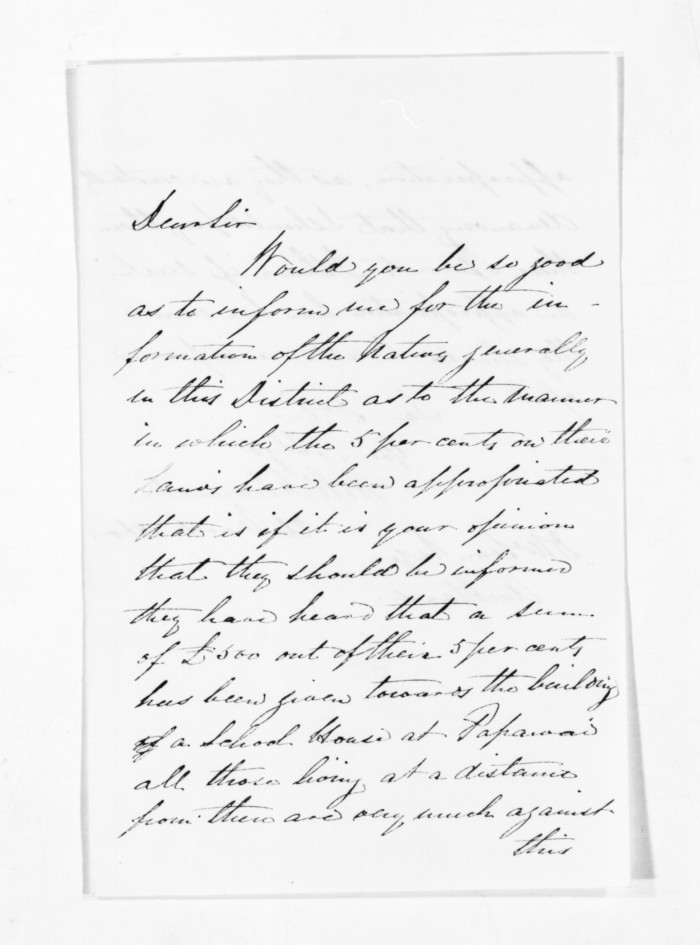 Dear Sir
Would you be so good
as to inform me for the in-
formation of the Natives generally
in this District as to the manner
in which the 5 per cents on their
Lands have been appropriated
that is if it is your opinion
that they should be informed
they have heard that a sum
of £500 out of their 5 per cents
has been given towards the building
of a School House at Papawai
all those living at a distance
from there are very much against
this